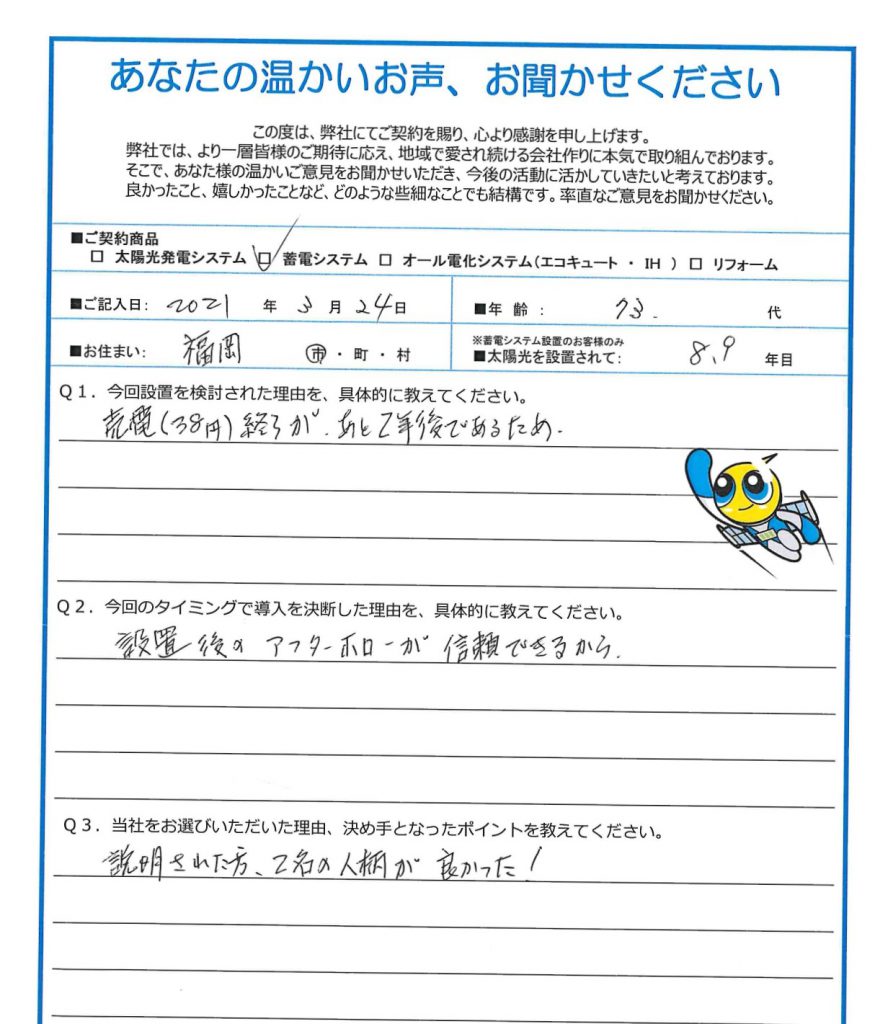 あなたの温かいお声、お聞かせください
この度は、弊社にてご契約を賜り、心より感謝を申し上げます。
弊社では、より一層皆様のご期待に応え、地域で愛され続ける会社作りに本気で取り組んでおります。
そこで、あなた様の温かいご意見をお聞かせいただき、今後の活動に活かしていきたいと考えております。
良かったこと、嬉しかったことなど、どのような些細なことでも結構です。率直なご意見をお聞かせください。
■ご契約商品
□ 太陽光発電システム ☑ 蓄電システム □ オール電化システム(エコキュート ・ IH ) □ リフォーム
■ご記入日: 2021 年 3 月 24日 ■年 齢 : 73. 代
※蓄電システム設置のお客様のみ
■お住まい: 福岡 市 ・ 町 ・ 村 ■太陽光を設置されて: 8、9 年目
Q1. 今回設置を検討された理由を、具体的に教えてください。
売電(38円)終了が、あと2年後であるため.
Q2. 今回のタイミングで導入を決断した理由を、具体的に教えてください。
設置後のアフターホローが信頼できるから.
Q3. 当社をお選びいただいた理由、決め手となったポイントを教えてください。
説明された方、2名の人柄が良かった!